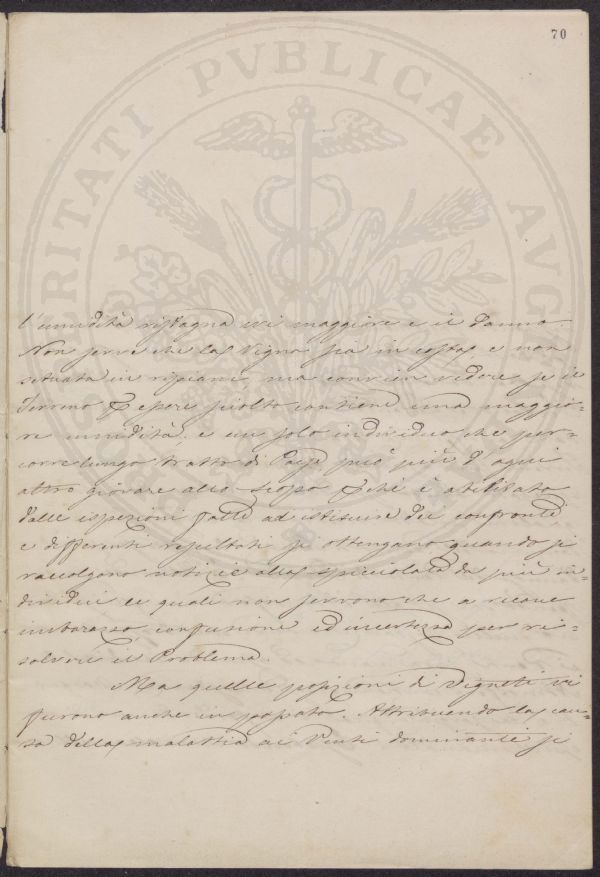 70
PROSPERITATI PVBLICAE AVG
l'umidità ristagna ivi maggiore è il danno.
Non serve che la Vigna sia in costa, e non
situata in ripiani, ma convien vedere se il
Terreno p essere sciolto contiene una maggio-
re umidità. e un solo individuo che per-
corre lungo tratto di Paese può più d'ogni
altro giovare allo scopo pchè è abilitato
dalle ispezioni fatte ad istituire dei confronti
e differenti resultati si ottengano quando si
raccolgono notizie alla spicciolata da più in-
dividui le quali non servono che a recare
imbarazzo, confusione ed incertezza per ri-
solvere il Problema.
Ma quelle posizioni di Vigneti vi
furono anche in passato. Attribuendo la cau-
sa della malattia ai Venti dominanti si